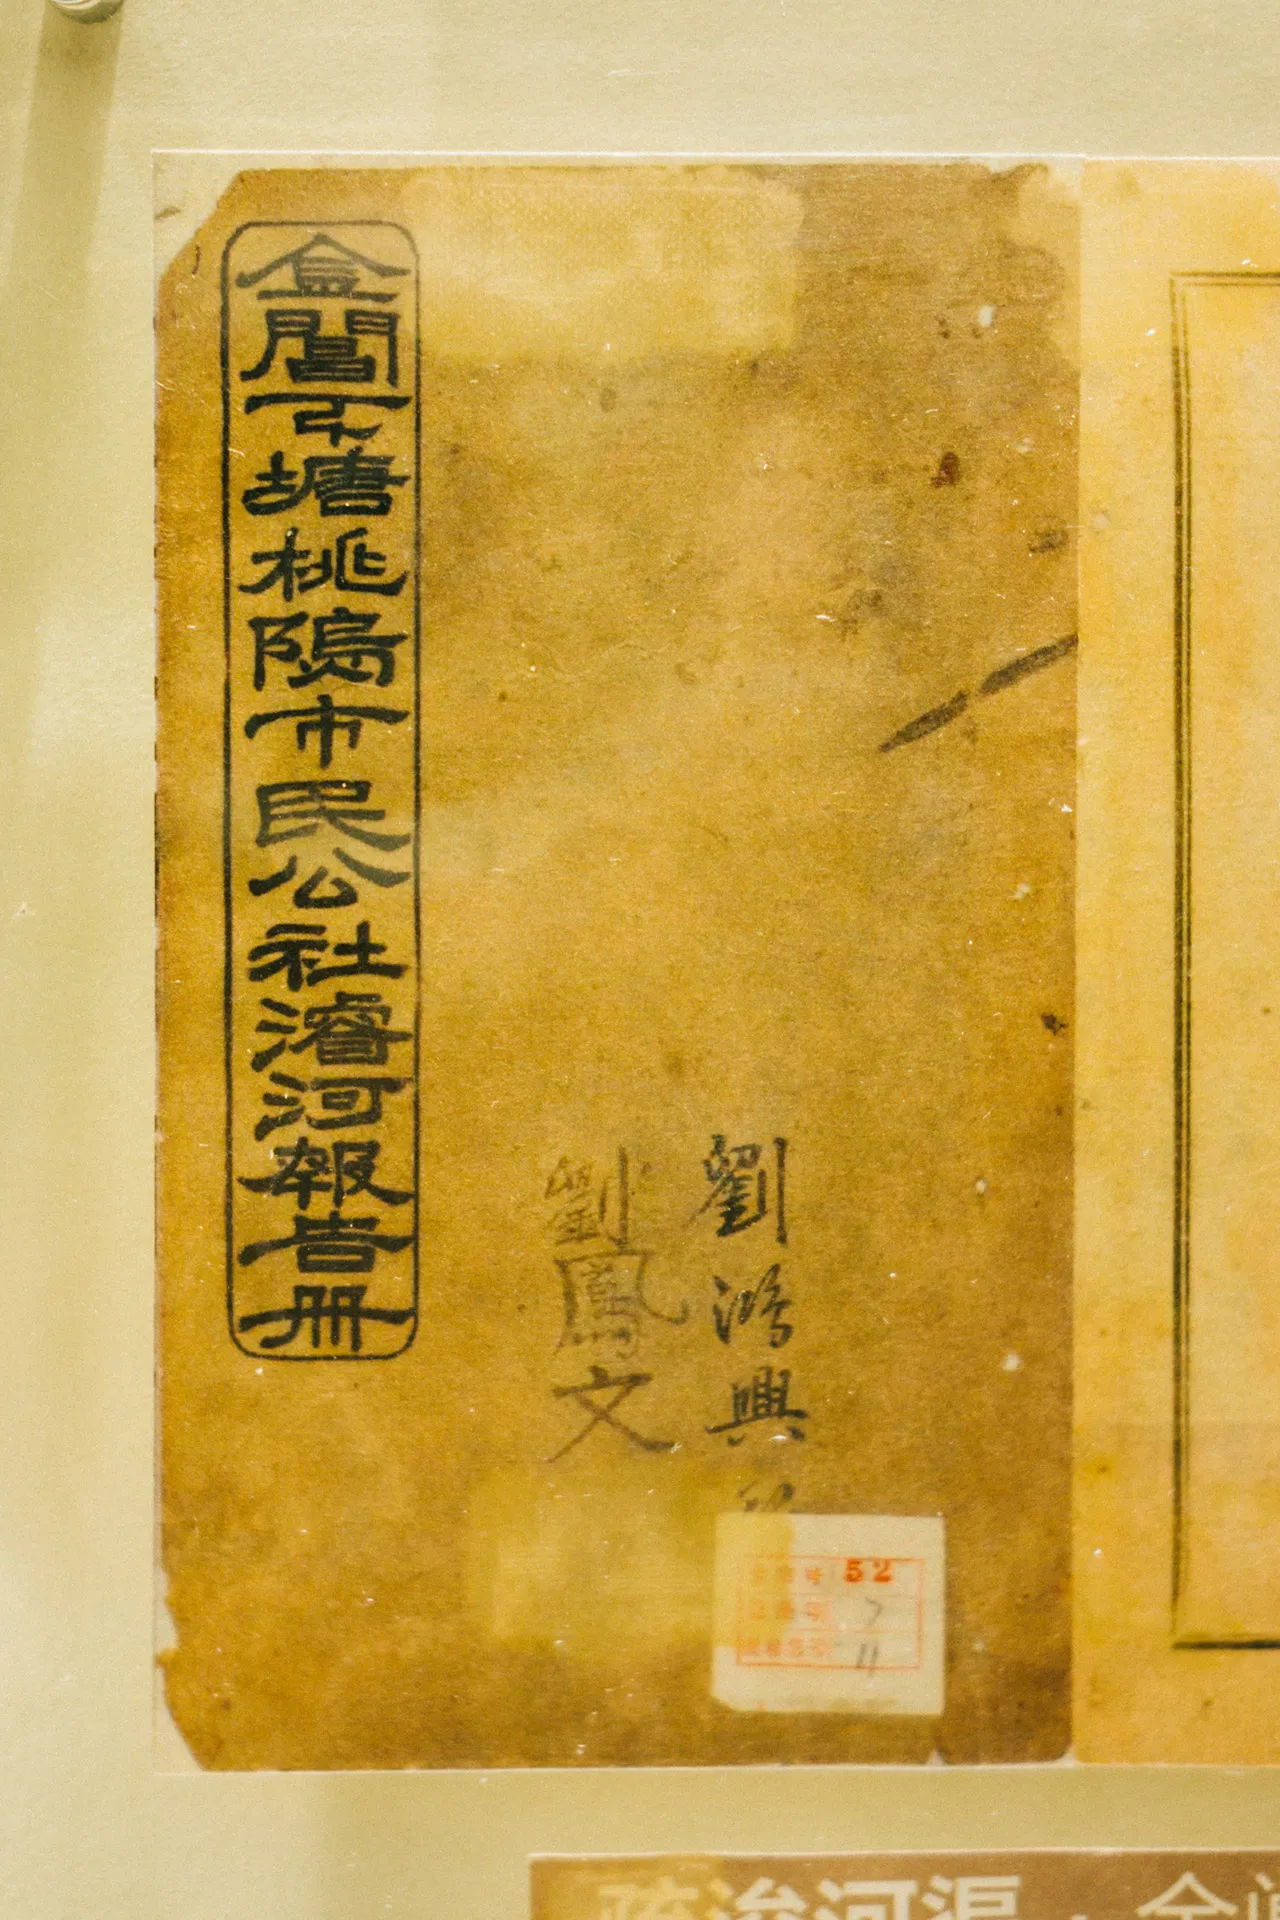 劉鴻興
劉鳳文
金閶下塘桃隖市民公社濬河報告册
52
7
11
疏浚河渠·金